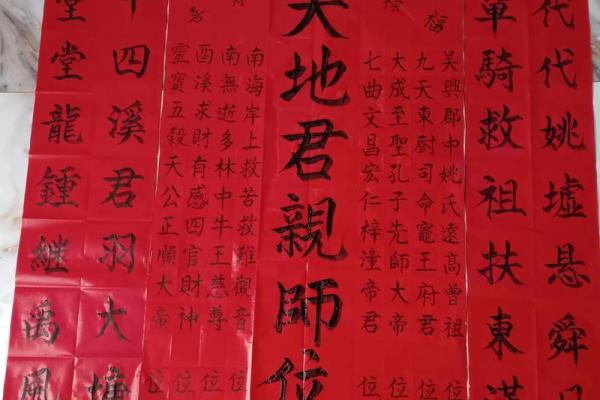 代代姚墟悬舜
單騎救祖扶東漢
福
吳興郡中姚氏遠高曾祖位
九天東厨司命竈王府君位
大成至聖孔子先師大帝位
七曲文昌宏仁梓潼帝君位
天地君親師位
南海岸上救苦救難觀音位
南無逝多林中牛王慈尊位
酉溪求財有感四官財神位
靈寶五穀天公正順大帝位
四溪君羽大塘
堂堂龍鍾継禹風